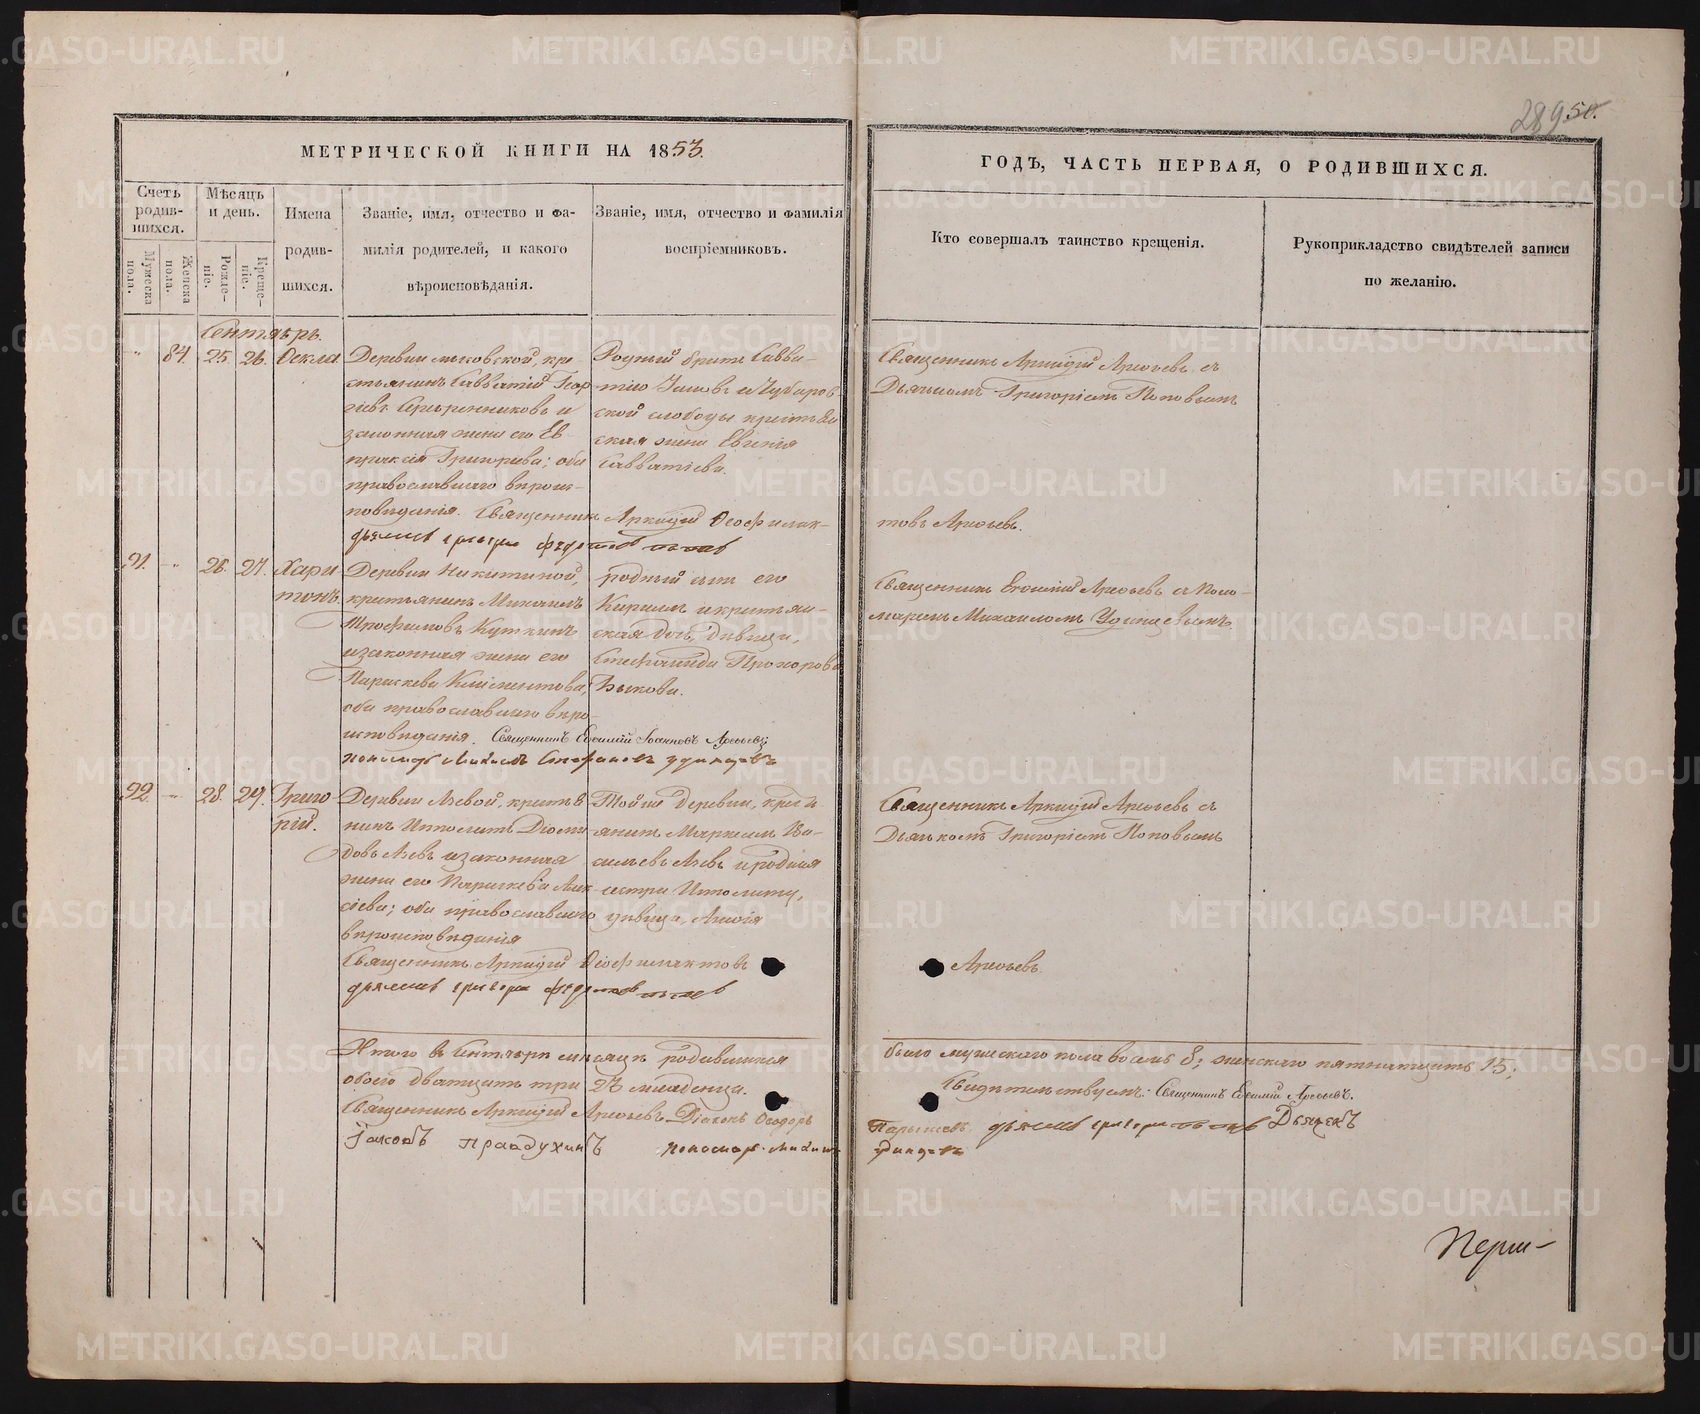 289 50.
МЕТРИЧЕСКОЙ КНИГИ НА 1853.
Счетъ родив-шихся.
Мужеска пола.
Женска пола.
Мѣсяцъ и день.
Рожде-ніе.
Креще-ніе.
Имена родив-шихся.
Званіе, имя, отчество и фа-
милія родителей, и какого
вѣроисповѣданія.
Званіе, имя, отчество и фамилія
воспріемниковъ.
ГОДЪ, ЧАСТЬ ПЕРВАЯ, О РОДИВШИХСЯ.
Кто совершалъ таинство крещенія.
Рукоприкладство свидѣтелей записи
по желанію.
Сентябрь.
" 84. 25. 26. Ѳекла
Деревни кре-
стьянинъ Савватій Геор
гіевъ Серебренниковъ и
законная жена его Ев-
праксія Григорьева; оба
православнаго вѣроис-
повѣданія. Священникъ Аркадій Ѳеофилак-
Родный братъ Савва-
тію и Чубаров-
ской слободы крестьян
ская жена Евгенія
Савватіева.
Священникъ Аркадій Арефьевъ съ
Дьячкомъ Григоріемъ Поповымъ
товъ Арефьевъ.
21. " 26. 27. Хари-
тонъ.
Деревни Никитиной,
крестьянинъ Михаилъ
Трофимовъ Куткинъ
и законная жена его
Параскева Климентова;
оба православнаго вѣро-
исповѣданія. Священникъ Евфимій Іоанновъ Арефьевъ;
пономарь Михаилъ Стефановъ Удинцевъ
родный сынъ его
Кириллъ и крестьян-
ская дочь, дѣвица,
Стефанида Прохорова
Быкова.
Священникъ Евфимій Арефьевъ съ Поно-
маремъ Михаиломъ Удинцевымъ.
22. " 28. 29. Григо-
рій.
Деревни Лѣвой, крестья
нинъ Ипполитъ Діоми
довъ Лѣвъ и законная
жена его Параскева Алек
сіева; оба православнаго
вѣроисповѣданія
Священникъ Аркадій Ѳеофилактовъ
Той же деревни, крестья
янинъ Маркеллъ Ва-
сильевъ Лѣвъ и родная
сестра Ипполиту,
дѣвица,
Священникъ Аркадій Арефьевъ съ
Дьячкомъ Григоріемъ Поповымъ
Арефьевъ.
Итого въ Сентябрѣ мѣсяцѣ родившихся
обоего двадцать три 23 младенца.
было мужескаго пола восемь 8; женскаго пятнадцать 15;
Свидѣтельствуемъ: Священникъ Евфимій Арефьевъ.
Священникъ Аркадій Арефьевъ Діаконъ Ѳеодоръ
Дьячекъ
Іаковъ Правдухинъ пономарь Михаилъ
Удинцевъ
Перм-
METRIKI.GASO-URAL.RU